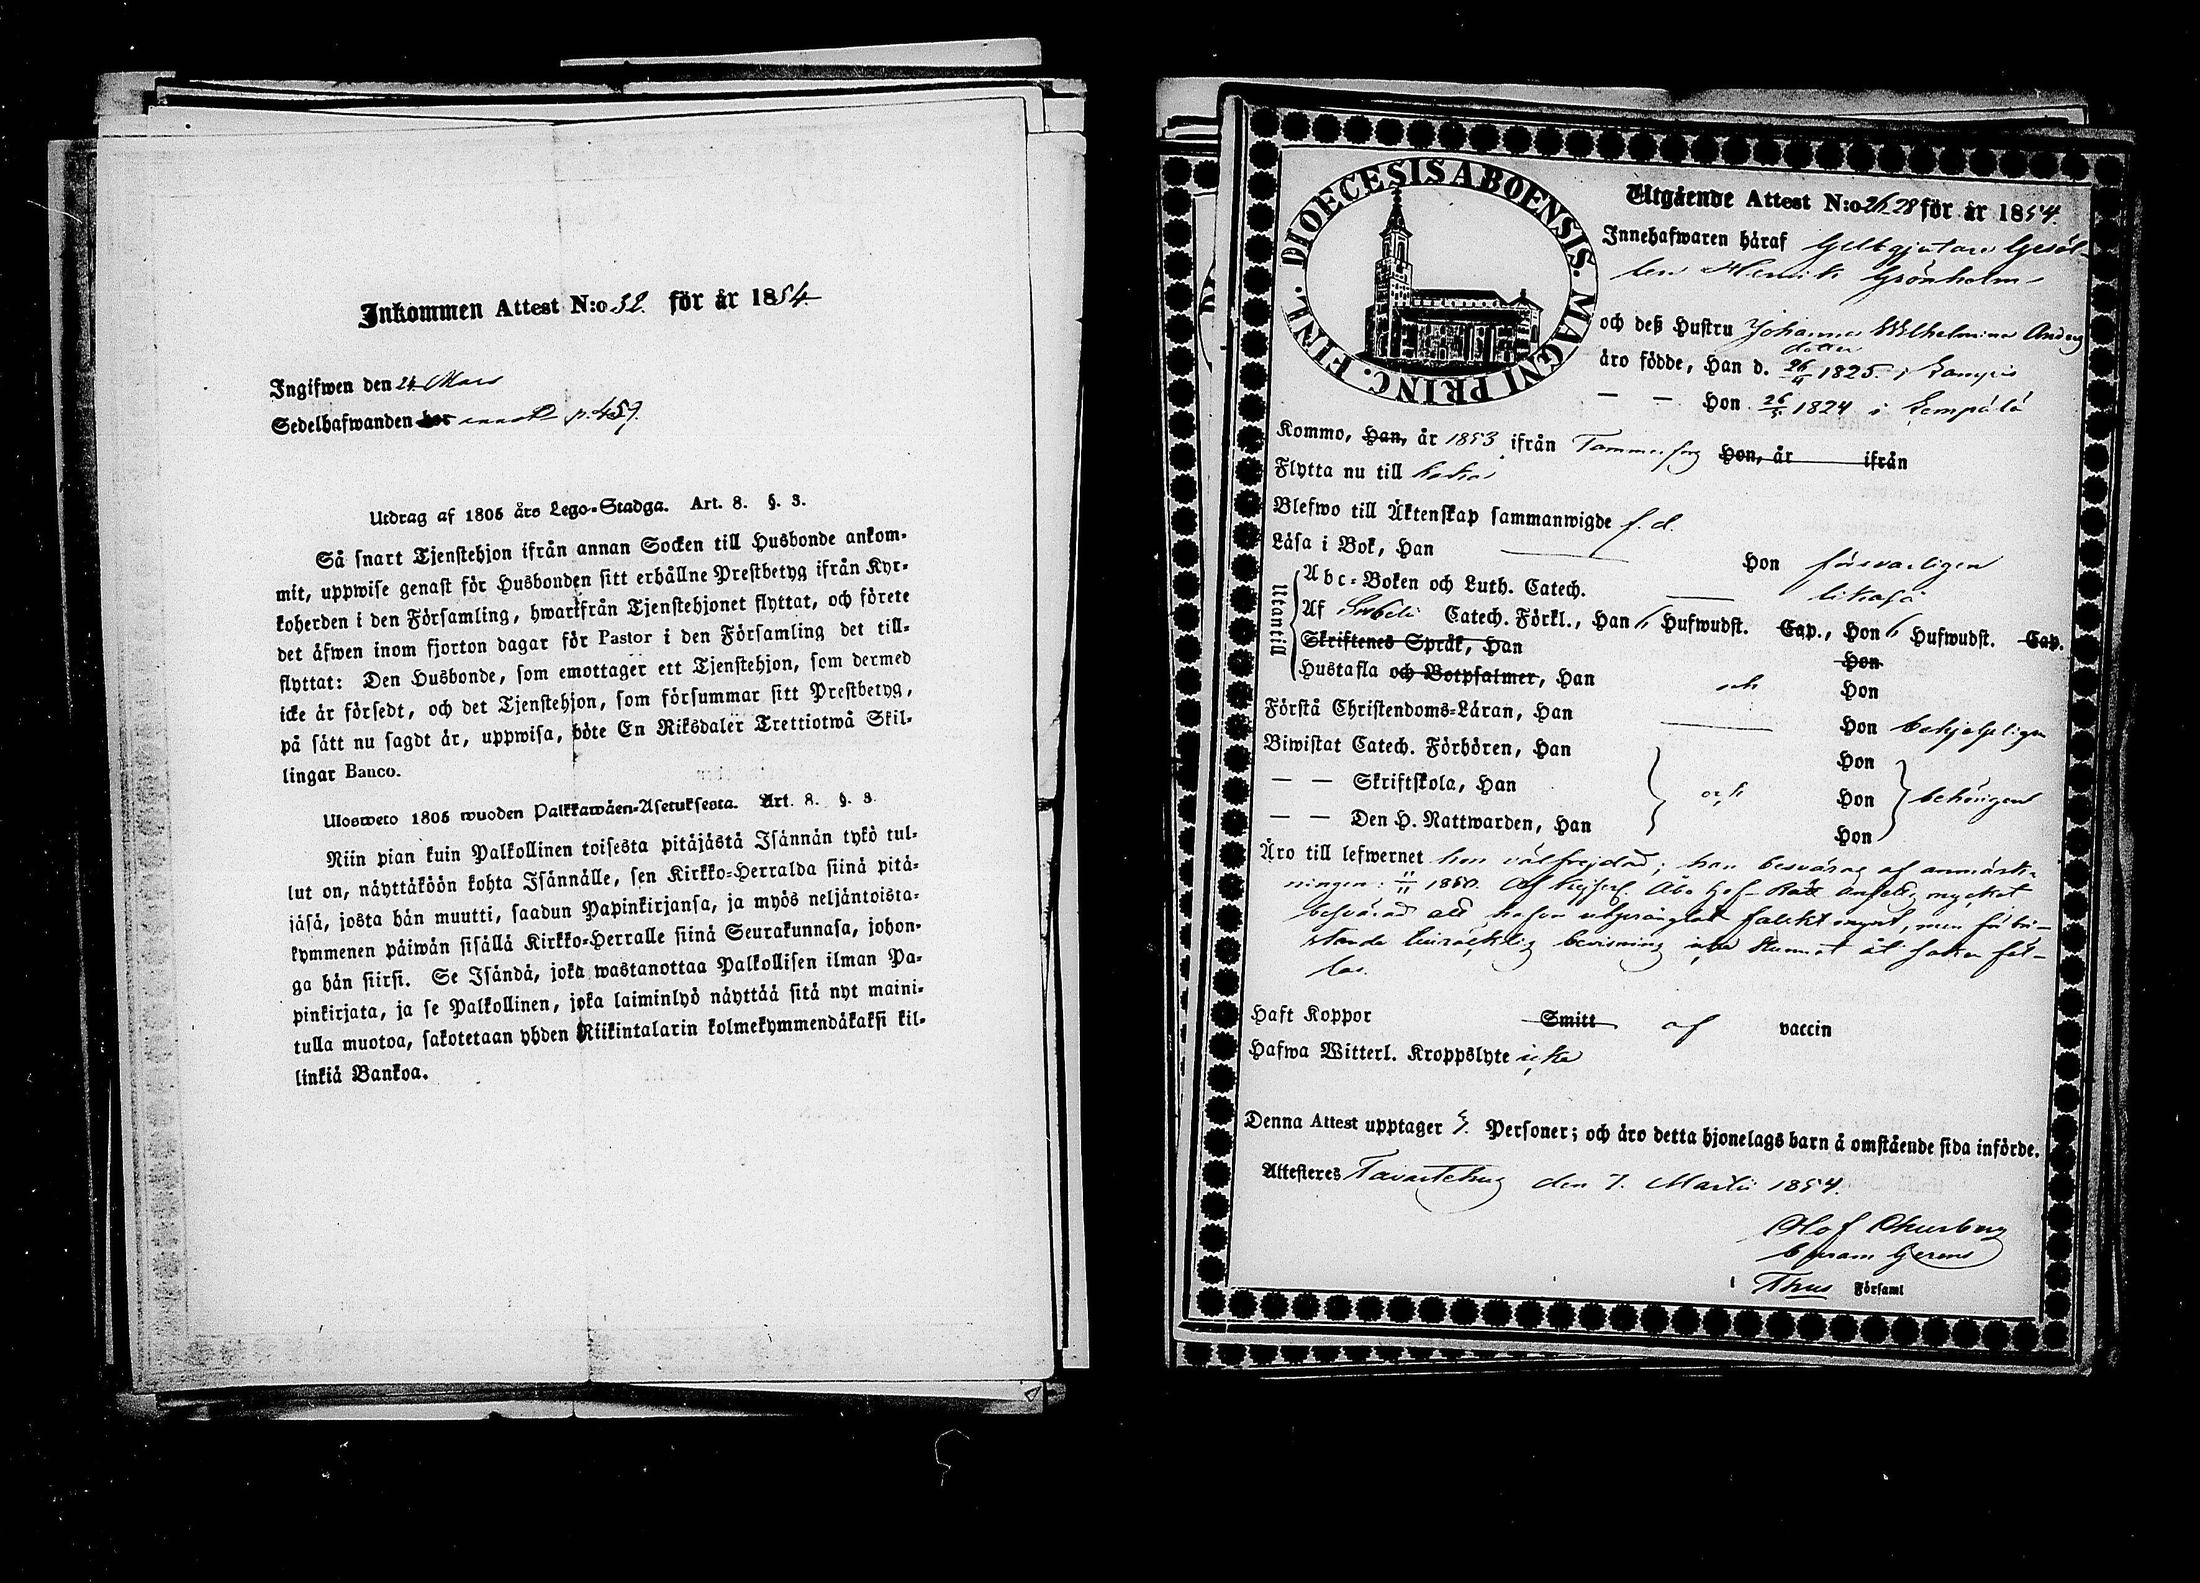 Inkommen Attest N:o 52. för år 1854
Ingifwen den 24 Mars
Sedelhafwanden har p. 459.
Utdrag af 1805 års Lego-Stadga. Art. 8. §. 3.
Så snart Tjenstehjon ifrån annan Socken till Husbonde ankom-
mit, uppwise genast för Husbonden sitt erhållne Prestbetyg ifrån Kyr-
koherden i den Församling, hwarifrån Tjenstehjonet flyttat, och förete
det äfwen inom fjorton dagar för Pastor i den Församling det till-
flyttat: Den Husbonde, som emottager ett Tjenstehjon, som dermed
icke är försedt, och det Tjenstehjon, som försummar sitt Prestbetyg,
på sätt nu sagdt är, uppwisa, böte En Riksdaler Trettiotwå Skil-
lingar Banco.
Uloswето 1805 wuoden Palkkawäen-Asetuksesta. Art. 8. §. 3.
Niin pian kuin Palkollinen toisesta pitäjästä Isännän tykö tul-
lut on, näyttäköön kohta Isännälle, sen Kirkko-Herralda siinä pitä-
jäsä, josta hän muutti, saadun Papinkirjansa, ja myös neljäntoista-
kymmenen päiwän sisällä Kirkko-Herralle siinä Seurakunnasa, johon-
ga hän siirsi. Se Isändä, joka wastanottaa Palkollisen ilman Pa-
pinkirjata, ja se Palkollinen, joka laiminlyö näyttää sitä nyt maini-
tulla muotoa, sakotetaan yhden Riikintalarin kolmekymmendäkaksi kil-
linkiä Bankoa.
DIOECESIS ABOENSIS. MAGNI PRINC. FINL.
Utgående Attest N:o 26-28 för år 1854.
Innehafwaren häraf Geltgjutare Gesäl-
len Henrik Grönholm
och deß Hustru Johanna Wilhelmina Anders
dotter
äro födde, Han d. 26/11 1825. i
— — Hon 26/5 1824 i Lempälä
Kommo, Han, år 1853 ifrån Tammerfors Hon, år ifrån
Flytta nu till
Blefwo till Äktenskap sammanwigde f. d.
Läsa i Bok, Han Hon försvarligen
Utantill
Abc-Boken och Luth. Catech. likaså
Af Svebelii Catech. Förkl., Han 6 Hufwudst. Cap., Hon 6 Hufwudst. Cap.
Skriftenes Språk, Han Hon
Hustafla och Botpsalmer, Han och Hon
Förstå Christendoms-Läran, Han Hon behjelpligen
Biwistat Catech. Förhören, Han Hon
— — Skriftskola, Han och Hon behörigen
— — Den H. Nattwarden, Han Hon
Äro till lefwernet hon välfrejdad; han besväras af anmärk-
ningen: 11/11 1850. Af Kejserl. Åbo Hof-Rätt ansedd mycket
besvärad att hafva utprånglat falskt mynt, men i bri-
stande bevisning icke kunnat åt saken fäl-
las.
Haft Koppor Smitt af vaccin
Hafwa Witterl. Kroppslyte icke
Denna Attest upptager 3. Personer; och äro detta hjonelags barn å omstående sida införde.
Attesteres Tavastehus den 7. Martii 1854.
Olof
i Thus Församl